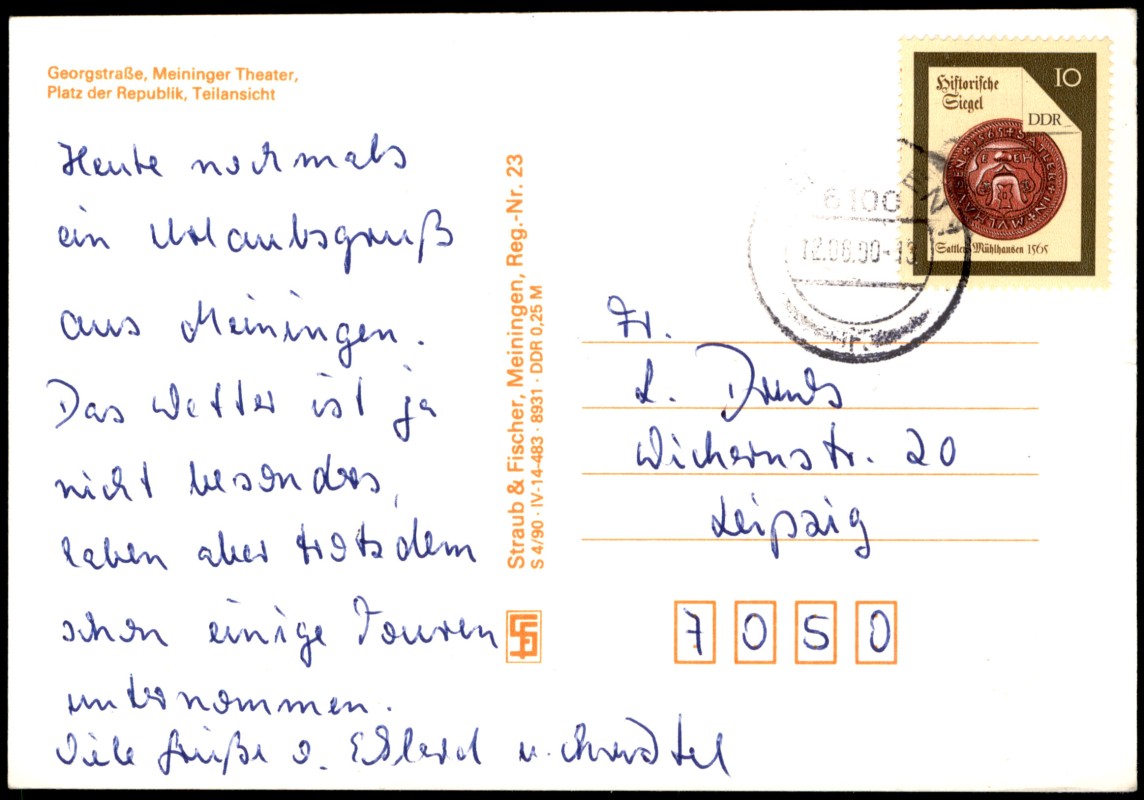 Georgstraße, Meininger Theater,
Platz der Republik, Teilansicht
Heute nochmals
ein Urlaubsgruß
aus Meiningen.
Das Wetter ist ja
nicht besonders,
haben aber trotzdem
schon einige Touren
unternommen.
Viele Grüße v. u.
Straub & Fischer, Meiningen, Reg.-Nr. 23
S 4/90 · IV-14-483 · 8931 · DDR 0,25 M
Historische
Siegel
10
DDR
Sattler Mühlhausen 1565
6100
12.06.90-13
Fr.
L.
Wichernstr. 20
Leipzig
7050